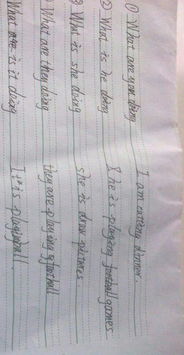 ① What are you doing I am eating dinner.
② What is he doing & he is playing football games.
③ What is she doing she is draw pictures
What are they doing they are playing football
What are is it doing It is playing ball.